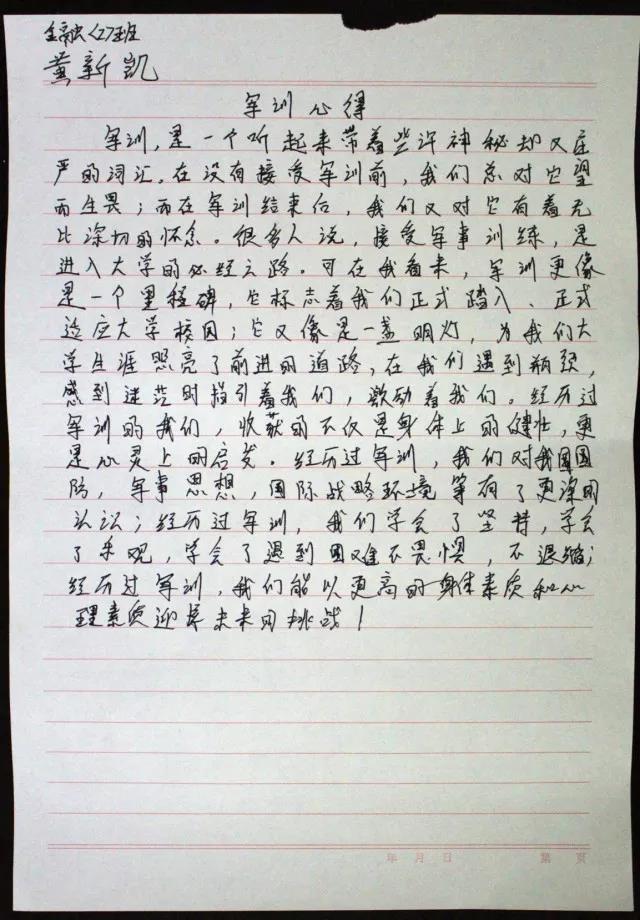 金融<2>班
黄新凯
军训心得
军训,是一个听起来带着些许神秘却又庄
严的词汇,在没有接受军训前,我们总对它望
而生畏;而在军训结束后,我们又对它有着无
比深切的怀念。很多人说,接受军事训练,是
进入大学的必经之路。可在我看来,军训更像
是一个里程碑,它标志着我们正式踏入、正式
适应大学校园;它又像是一盏明灯,为我们大
学生涯照亮了前进的道路,在我们遇到瓶颈,
感到迷茫时指引着我们,激励着我们。经历过
军训的我们,收获的不仅是身体上的健壮,更
是心灵上的启发。经历过军训,我们对我国国
防,军事思想,国际战略环境等有了更深的
认识;经历过军训,我们学会了坚持,学会
了乐观,学会了遇到困难不畏惧,不退缩;
经历过军训,我们能以更高的身体素质和心
理素质迎接未来的挑战!
年 月 日 第 页